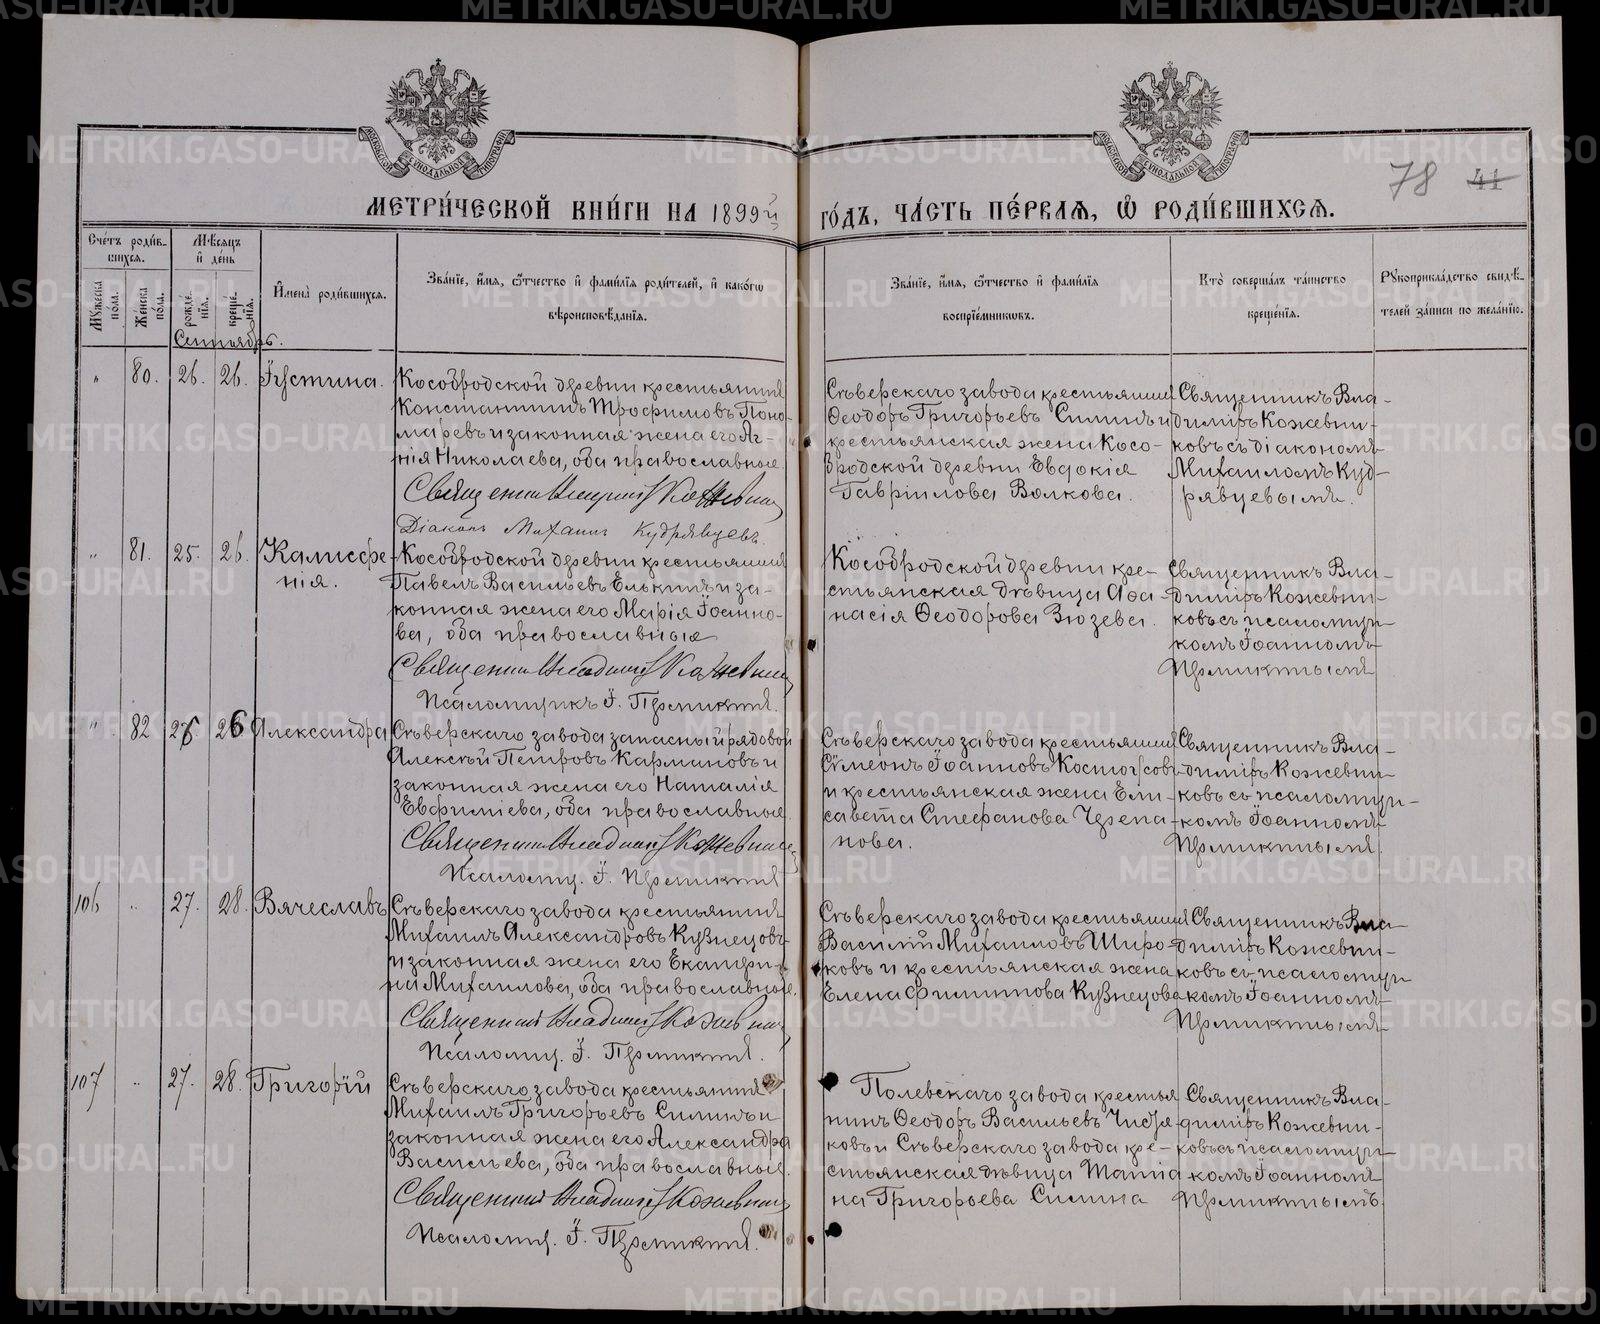 METRIKI.GASO-URAL.RU
МОСКОВСКОЙ СѴНОДАЛЬНОЙ ТИПОГРАФІИ
МОСКОВСКОЙ СѴНОДАЛЬНОЙ ТИПОГРАФІИ
78 41
МЕТРИ́ЧЕСКОЙ КНИ́ГИ НА 1899й ГО́ДЪ, ЧА́СТЬ ПЕ́РВАЯ, Ѿ РОДИ́ВШИХСЯ.
Сче́тъ роди́вшихся.
Мꙋжеска по́ла.
Же́нска по́ла.
Мѣ́сяцъ и́ де́нь
рожде́нія.
креще́нія.
И҆мена̀ роди́вшихся.
Зва́ніе, и҆́мя, ѻ҆́тчество и҆ фами́лїя роди́телей, и҆ како́гѡ вѣроисповѣ́данїя.
Зва́ніе, и҆́мя, ѻ҆́тчество и҆ фами́лїя воспрїе́мникѡвъ.
Кто̀ соверша́лъ та́инство креще́нїя.
Рꙋкоприкла́дство свидѣ́телей за́писи по жела́нїю.
Сентябрь.
" 80. 26. 26. Іустина.
Кособродской деревни крестьянинъ
Константинъ Трофимовъ Поно-
маревъ и законная жена его Аг-
нія Николаева, оба православные.
Священникъ Владиміръ Кожевник
Діаконъ Михаилъ Кудрявцевъ.
Сѣверскаго завода крестьянинъ
Ѳеодоръ Григорьевъ Силинъ и
крестьянская жена Косо-
бродской деревни Евдокія
Гавріилова Волкова.
Священникъ Вла-
диміръ Кожевни-
ковъ съ діакономъ
Михаиломъ Куд-
рявцевымъ.
" 81. 25. 26. Калисфе-
нія.
Кособродской деревни крестьянинъ
Павелъ Васильевъ Елькинъ и за-
конная жена его Марія Іоанно-
ва, оба православные
Священникъ Владиміръ Кожевник
Псаломщикъ І. Пермикинъ.
Кособродской деревни кре-
стьянская дѣвица Аѳа-
насія Ѳеодорова Зюзева.
Священникъ Вла-
диміръ Кожевни-
ковъ съ псаломщи-
комъ Іоанномъ
Пермикинымъ
" 82 26 26 Александра
Сѣверскаго завода запасный рядовой
Алексѣй Петровъ Кармановъ и
законная жена его Наталія
Евфиміева, оба православные.
Священникъ Владиміръ Кожевник
Псаломщ. І. Пермикинъ
Сѣверскаго завода крестьянинъ
Сѵмеонъ Іоанновъ Костоусовъ
и крестьянская жена Ели-
савета Стефанова Черепа-
нова.
Священникъ Вла-
диміръ Кожевни-
ковъ съ псаломщи-
комъ Іоанномъ
Пермикинымъ.
106 " 27. 28. Вячеславъ
Сѣверскаго завода крестьянинъ
Михаилъ Александровъ Кузнецовъ
и законная жена его Екатери-
на Михаилова, оба православные.
Священникъ Владиміръ Кожевник
Псаломщ. І. Пермикинъ.
Сѣверскаго завода крестьянинъ
Василій Михаиловъ Широ-
ковъ и крестьянская жена
Елена Филиппова Кузнецова
Священникъ Вла-
диміръ Кожевни-
ковъ съ псаломщи-
комъ Іоанномъ
Пермикинымъ
107 " 27. 28. Григорій
Сѣверскаго завода крестьянинъ
Михаилъ Григорьевъ Силинъ и
законная жена его Александра
Васильева, оба православные.
Священникъ Владиміръ Кожевник
Псаломщ. І. Пермикинъ.
Полевскаго завода крестья-
нинъ Ѳеодоръ Васильевъ
ковъ и Сѣверскаго завода кре-
стьянская дѣвица Татіа-
на Григорьева Силина
Священникъ Вла-
диміръ Кожевни-
ковъ съ псаломщи-
комъ Іоанномъ
Пермикинымъ.